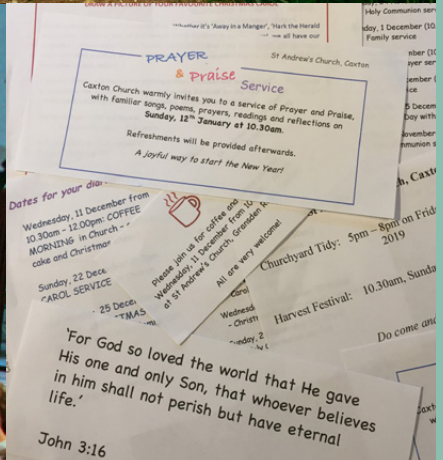 DRAW A PICTURE OF YOUR FAVOURITE CHRISTMAS CAROL
Whether it's 'Away in a Manger', 'Hark the Herald
all have our
Holy Communion
1 December (10
Family service
St Andrew's Church, Caxton
PRAYER
& Praise
Service
Caxton Church warmly invites you to a service of Prayer and Praise,
with familiar songs, poems, prayers, readings and reflections on
Sunday, 12th January at 10.30am.
Refreshments will be provided afterwards.
A joyful way to start the New Year!
Dates for your
Wednesday, 11 December from
10.30am - 12.00pm: COFFEE
MORNING in Church -
cake and
Sunday, 22
CAROL SERVICE
- 25
Please join us for coffee and
Wednesday, 11 December from
at St Andrew's Church, Gransden
All are very welcome!
Churchyard Tidy: 5pm – 8pm on
2019
Harvest Festival: 10.30am,
Do come and
'For God so loved the world that He gave
His one and only Son, that whoever believes
in him shall not perish but have eternal
life.'
John 3:16